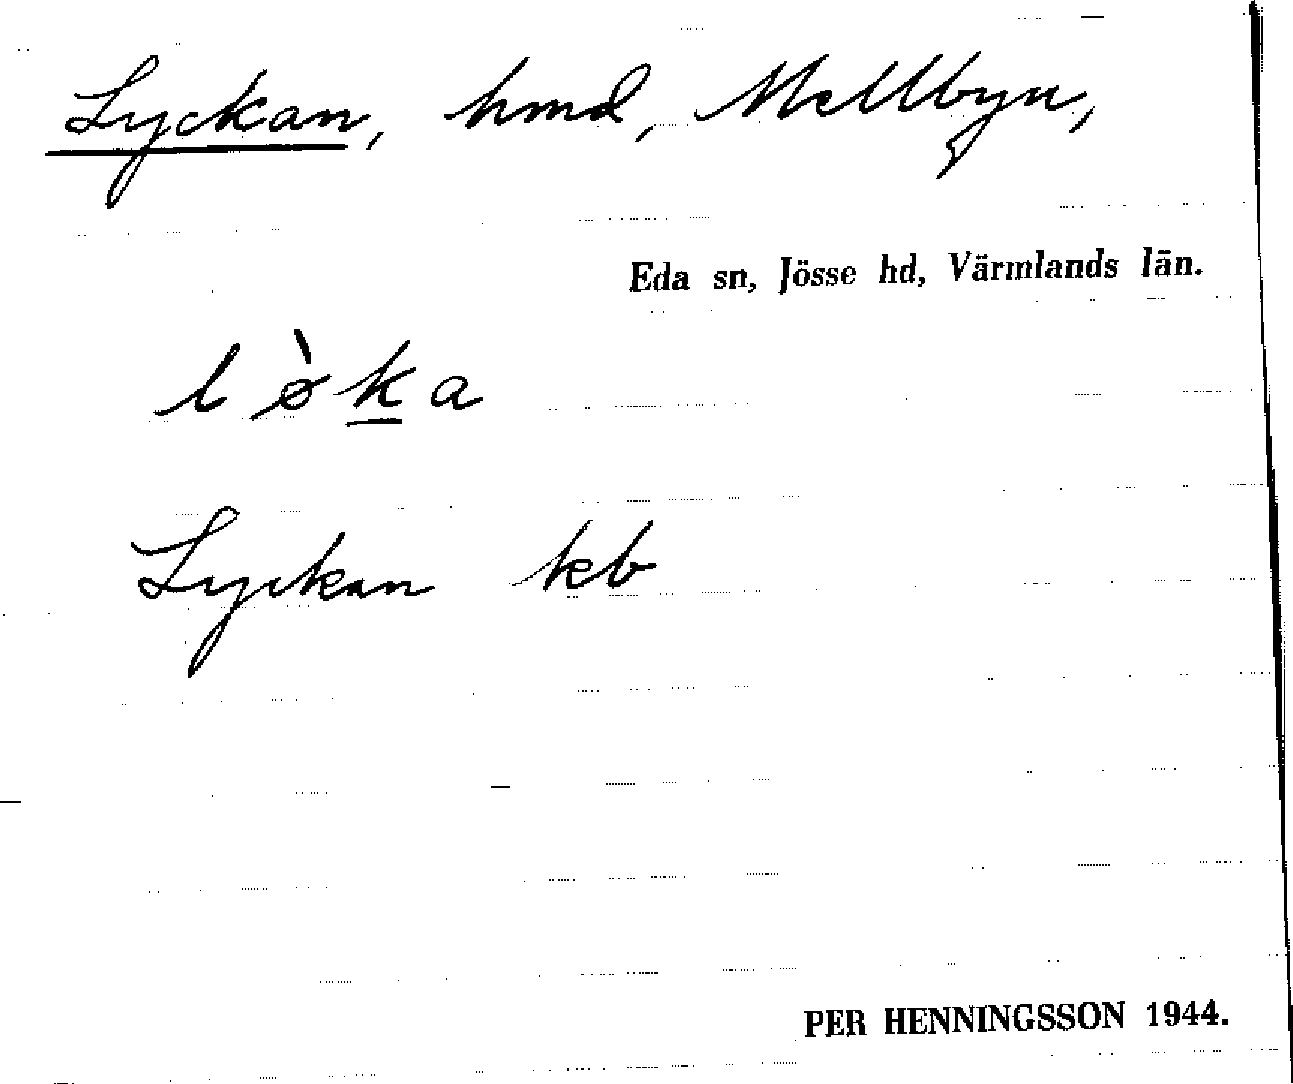 Lyckan, hmd, Mellbyn,
Eda sn, Jösse hd, Värmlands län.
lø̀ḵa
Lyckan kb
PER HENNINGSSON 1944.